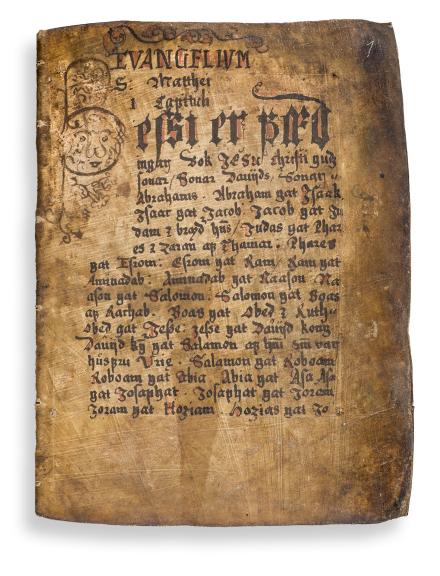 EVANGELIUM
S. Matthei
1 Capituli
essi er bœk
ingar Bok JESU christi gus
sonar / Sonar Dauids / Sonar
Abrahams. Abraham gat Isaak
Isaac gat Jacob. Jacob gat Ju
dam z brœd hns / Judas gat Phar
es z Zaram af Thamar. Phares
gat Esrom: Esrom gat Ram / Ram gat
Aminadab: Aminadab gat Naason. Na
ason gat Salomon: Salomon gat Boas
af Rachab. Boas gat Obed z Ruth
obed gat Jesse: Jesse gat Dauid kong
Dauid kg gat Salamon af hni sm var
hustru Vrie. Salamon gat Roboam
Roboam gat Abia. Abia gat Asa Asa
gat Josaphat. Josaphat gat Joram
Joram gat Hoziam. Hozias gat Jo
1